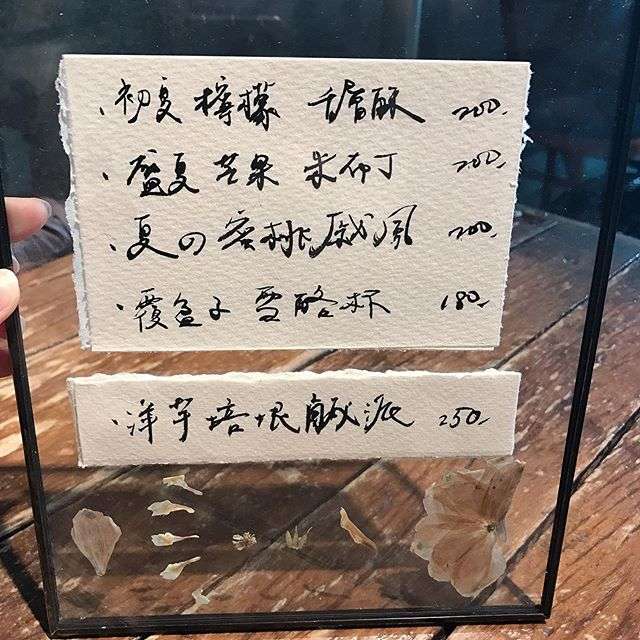 、初夏 檸檬 千層酥 200.-
、盛夏 芒果 米布丁 200.-
、夏の 蜜桃戚風 200.-
、覆盆子 雪酪杯 180.-
、洋芋培根鹹派 250.-